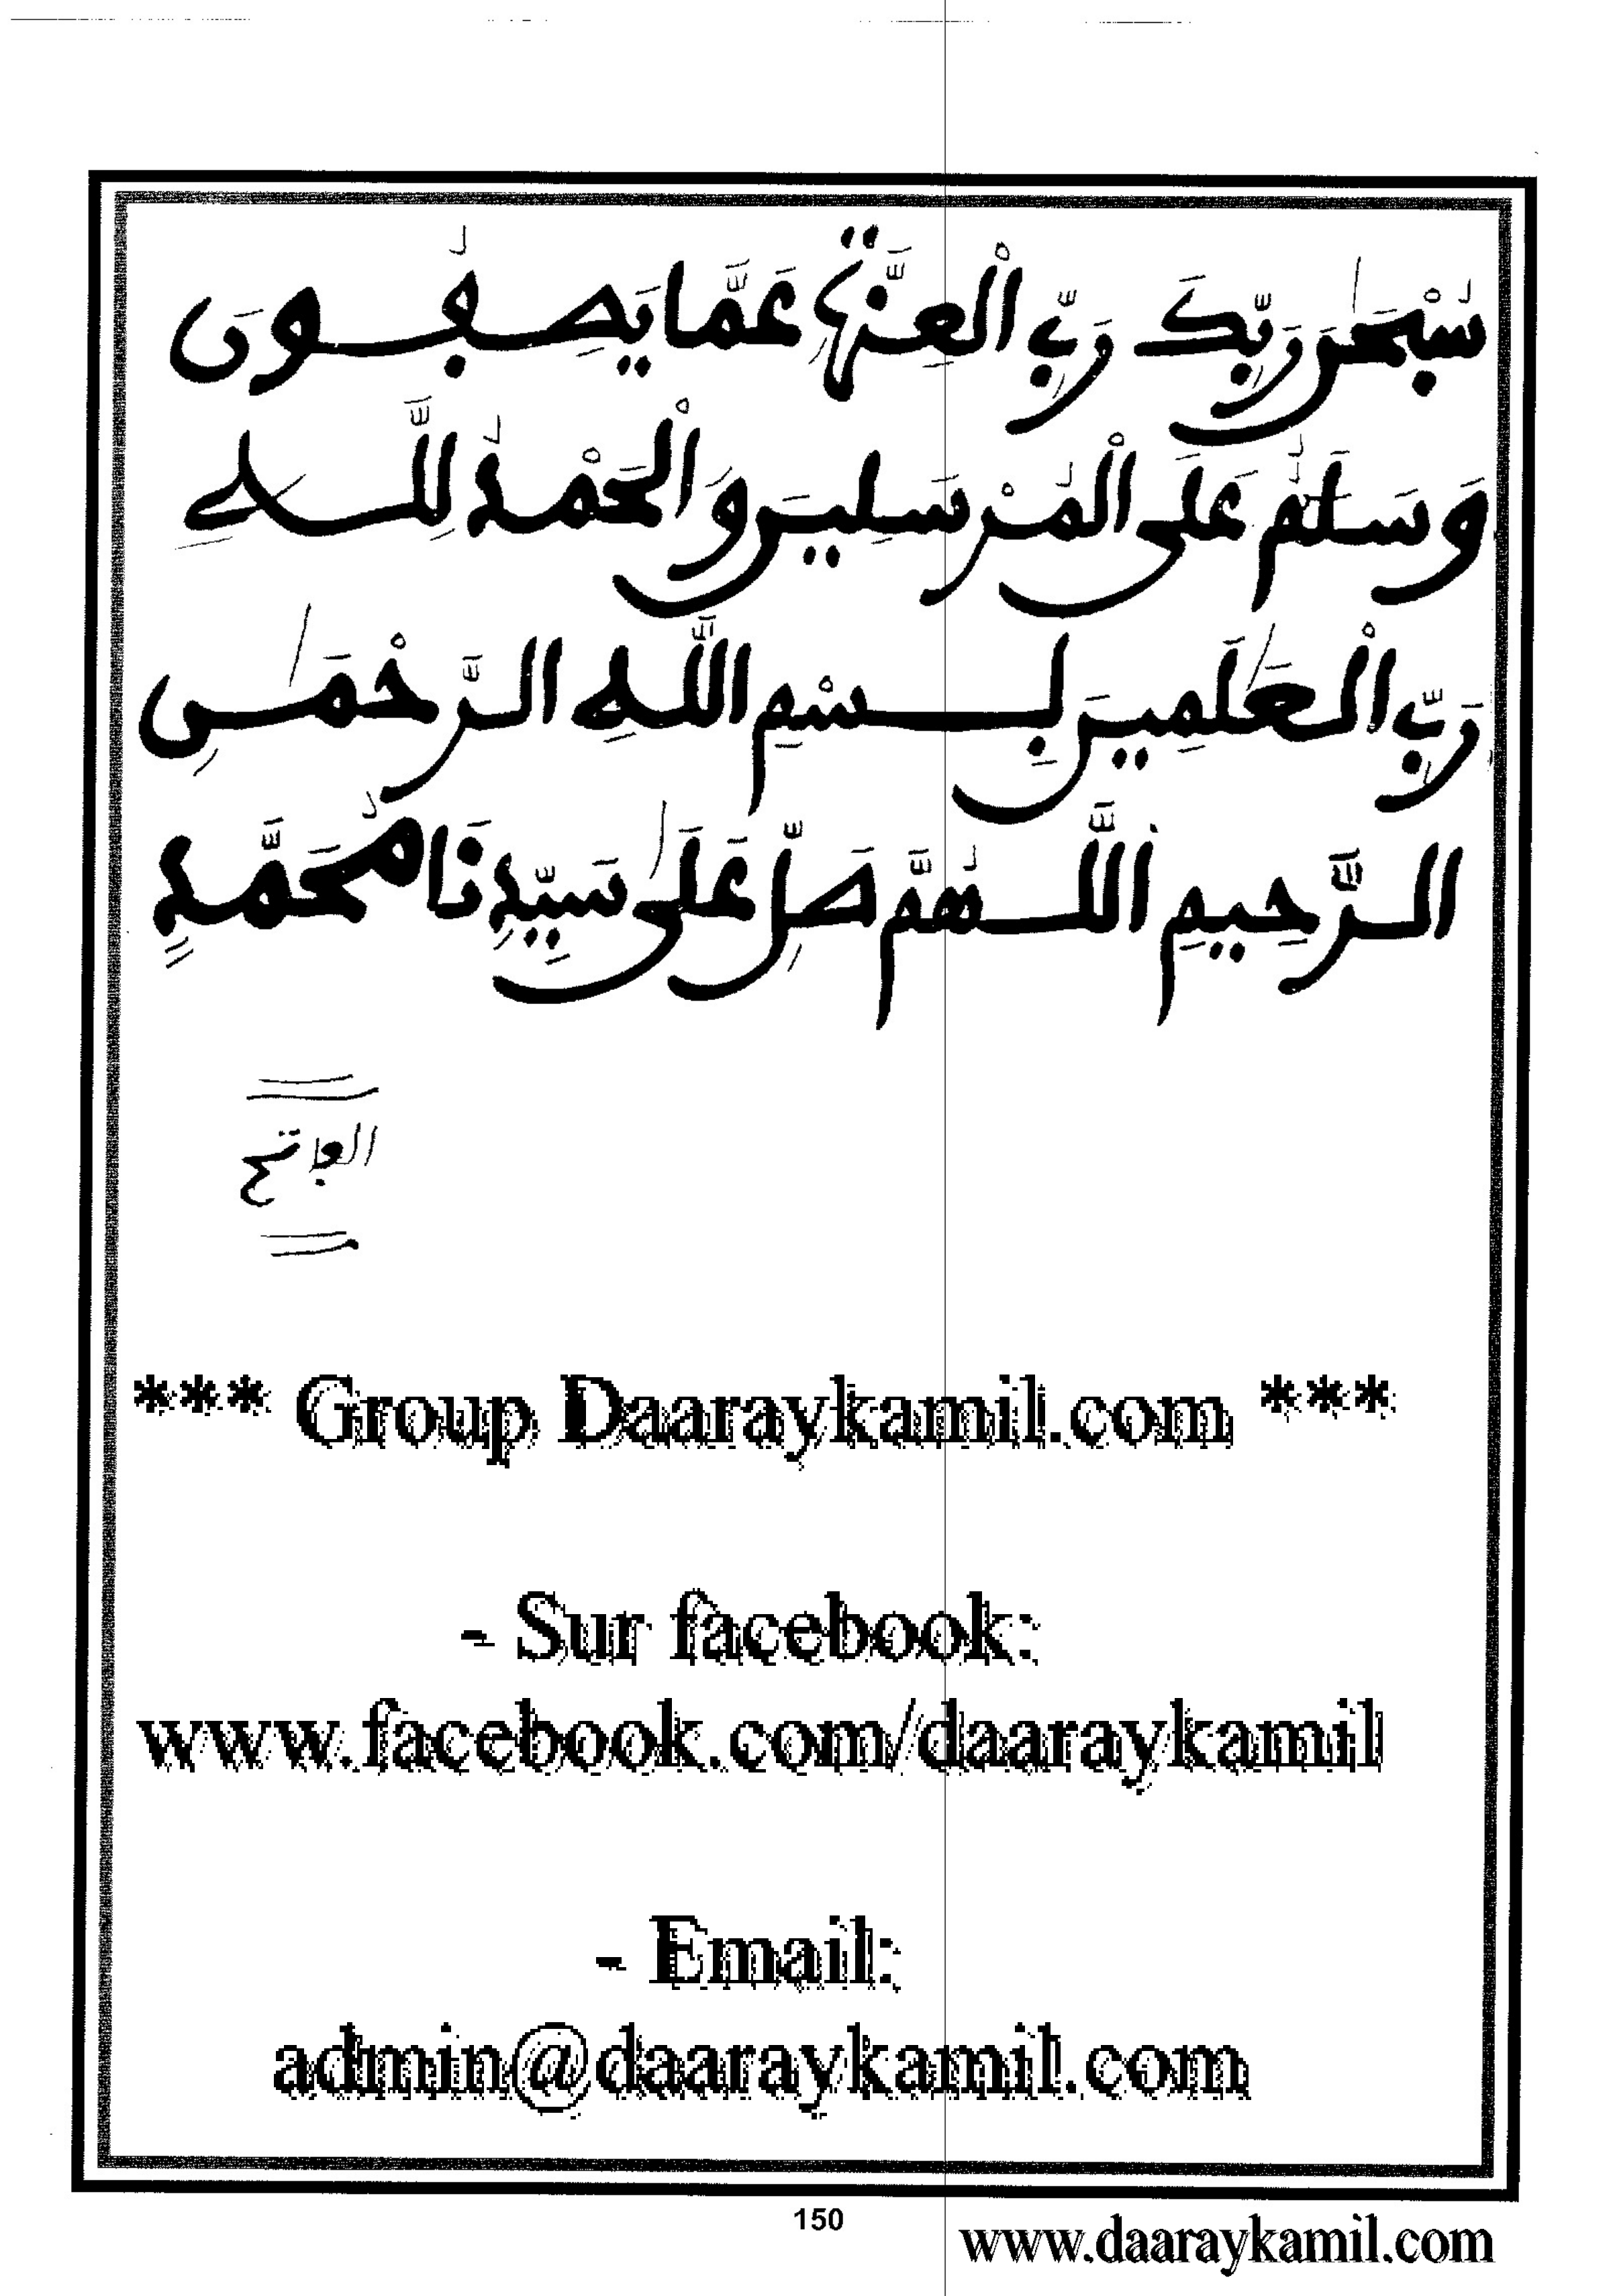 سُبْحَٰنَ رَبِّكَ رَبِّ الْعِزَّةِ عَمَّا يَصِفُونَ
وَسَلَٰمٌ عَلَى الْمُرْسَلِينَ وَالْحَمْدُ لِلَّهِ
رَبِّ الْعَٰلَمِينَ بِسْمِ اللَّهِ الرَّحْمَٰنِ
الرَّحِيمِ اللَّهُمَّ صَلِّ عَلَىٰ سَيِّدِنَا مُحَمَّدٍ
الفاتح
*** Group Daaraykamil.com ***
- Sur facebook:
www.facebook.com/daaraykamil
- Email:
admin@daaraykamil.com
150
www.daaraykamil.com